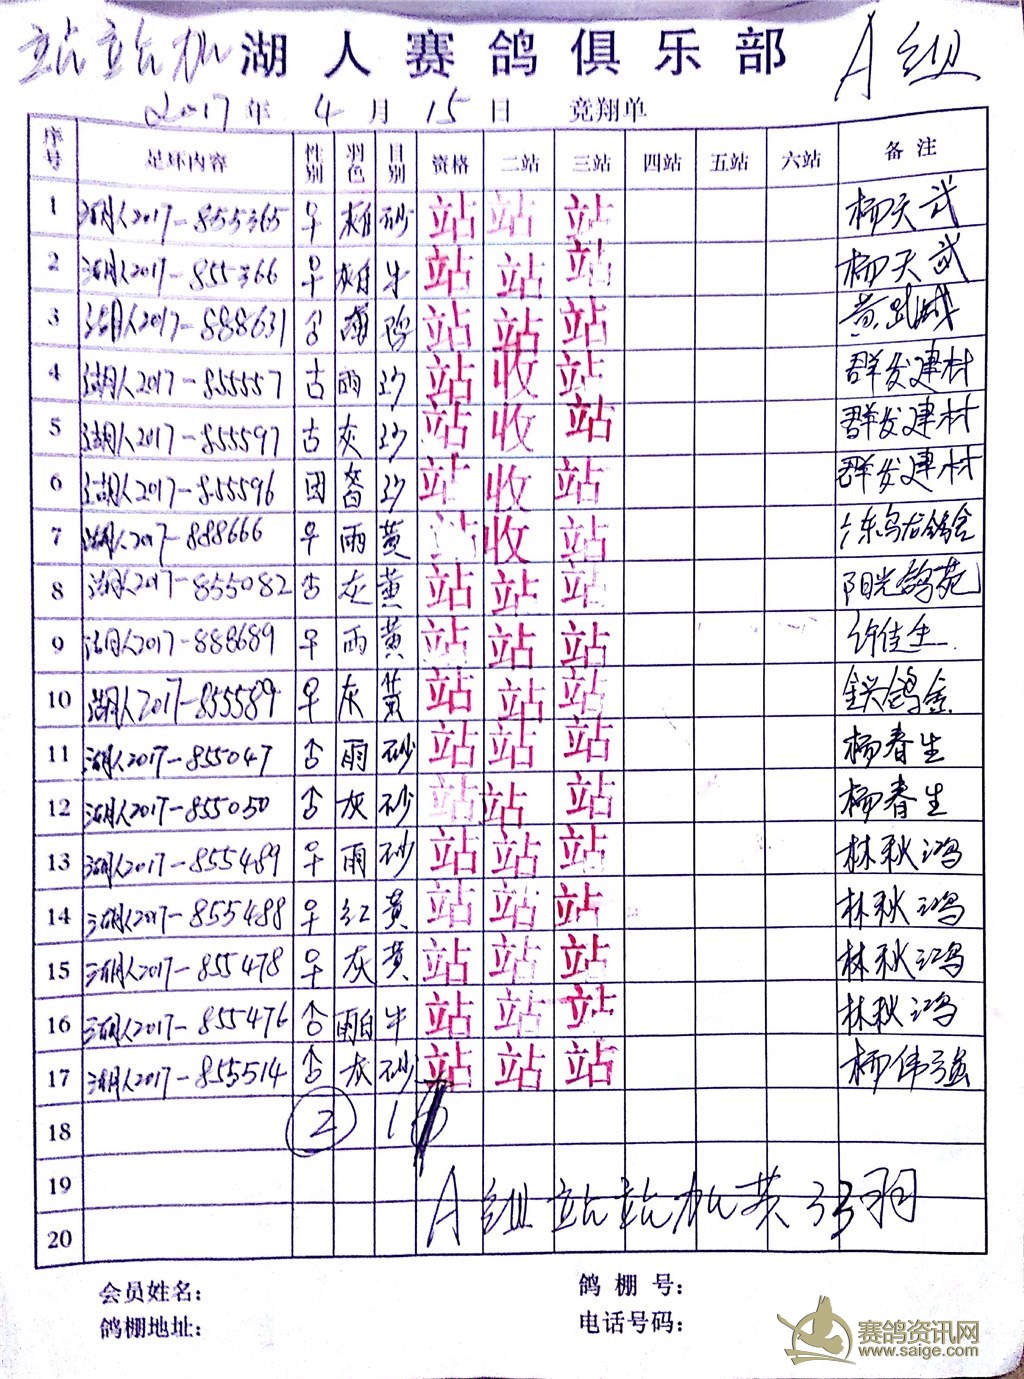 站站加 湖人赛鸽俱乐部 A组
2017年 4月 15日 竞翔单
序号 足环内容 性别 羽色 目别 资格 二站 三站 四站 五站 六站 备注
1 湖人2017-855365 早 砂 站 站 站 杨天武
2 湖人2017-855366 早 牛 站 站 站 杨天武
3 湖人2017-888631 站 站 站
4 湖人2017-855557 古 雨 沙 站 收 站 群发建材
5 湖人2017-855597 古 灰 沙 站 收 站 群发建材
6 湖人2017-855596 沙 站 收 站 群发建材
7 湖人2017-888666 早 雨 黄 站 收 站
8 湖人2017-855082 灰 黄 站 站 站 阳光鸽苑
9 湖人2017-888689 早 雨 黄 站 站 站
10 湖人2017-855589 早 灰 黄 站 站 站
11 湖人2017-855047 雨 砂 站 站 站 杨春生
12 湖人2017-855050 灰 砂 站 站 站 杨春生
13 湖人2017-855489 早 雨 砂 站 站 站 林秋鸿
14 湖人2017-855488 早 红 黄 站 站 站 林秋鸿
15 湖人2017-855478 早 灰 黄 站 站 站 林秋鸿
16 湖人2017-855476 牛 站 站 站 林秋鸿
17 湖人2017-855514 灰 砂 站 站 站 杨伟强
18 2
19
20 A组站站加共33羽
会员姓名： 鸽棚号：
鸽棚地址： 电话号码：
赛鸽资讯网
www.saige.com